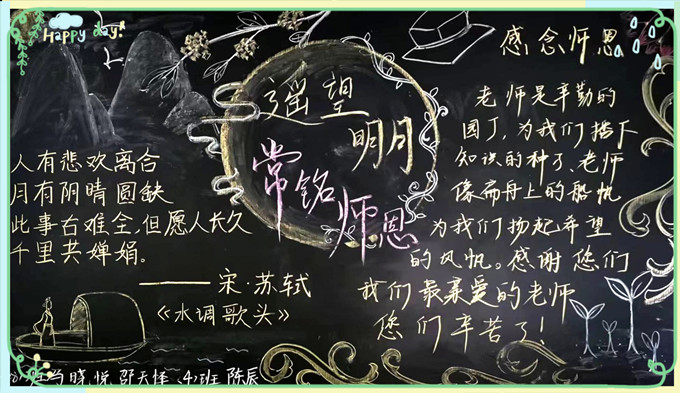 Happy day!
遥望
明月
常铭
师恩
人有悲欢离合
月有阴晴圆缺
此事古难全,但愿人长久
千里共婵娟。
——宋·苏轼
《水调歌头》
感念师恩
老师是辛勤的
园丁,为我们播下
知识的种子,老师
像扁舟上的船帆
为我们扬起希望
的风帆。感谢您们
我们最亲爱的老师
您们辛苦了!
晓悦 邵天 班 陈辰